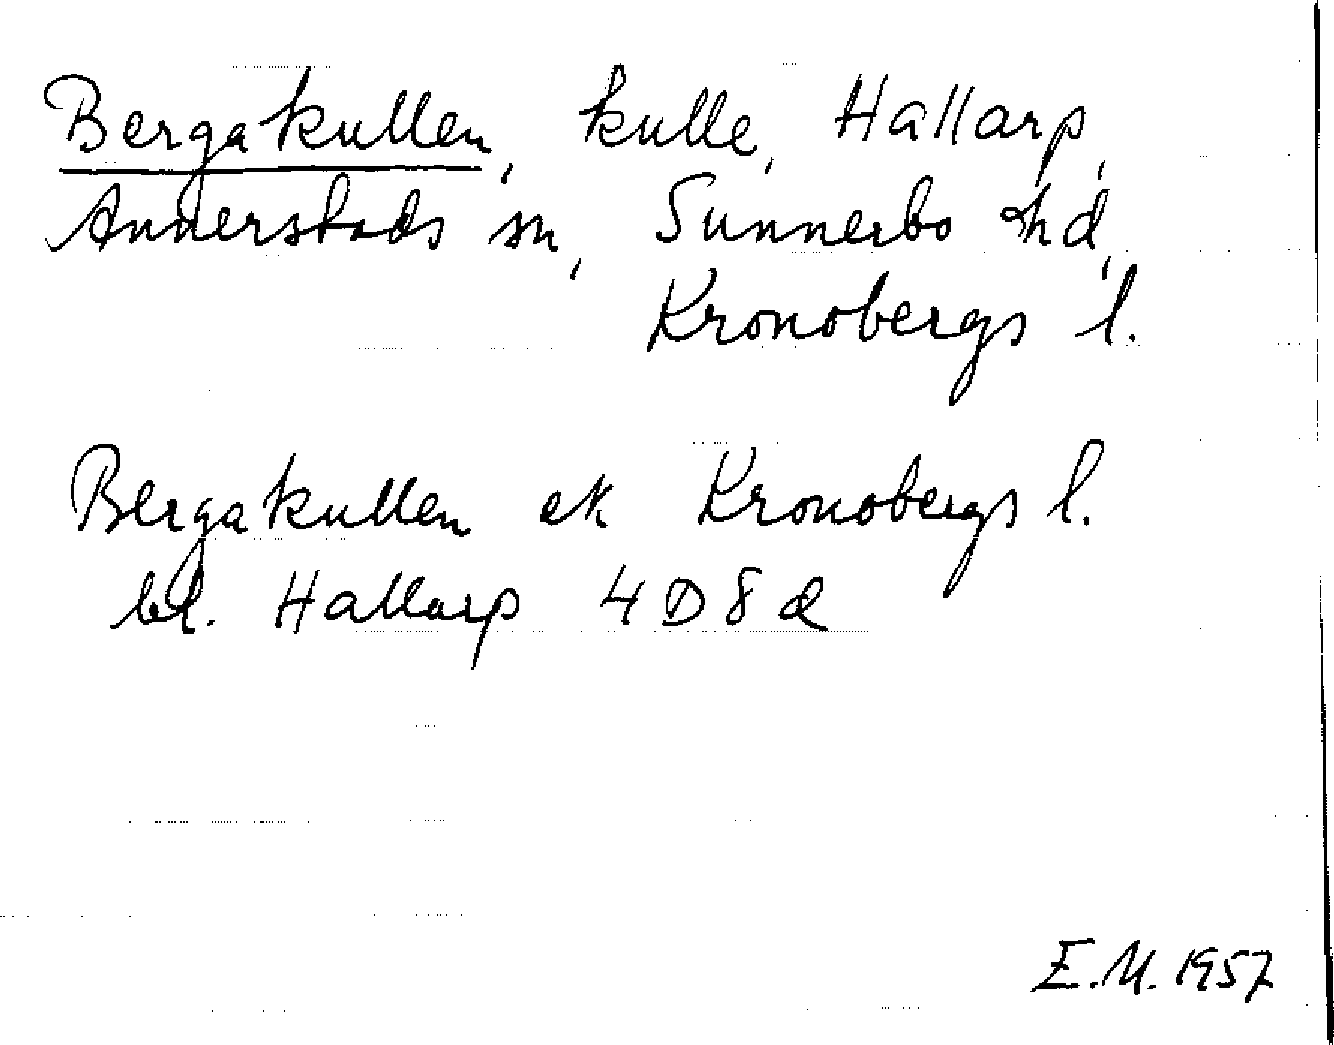 Bergakullen, kulle, Hallarp,
Annerstads sn, Sunnerbo hd,
Kronobergs l.
Bergakullen ek Kronobergs l.
bl. Hallarp 4D8d
E.M. 1957